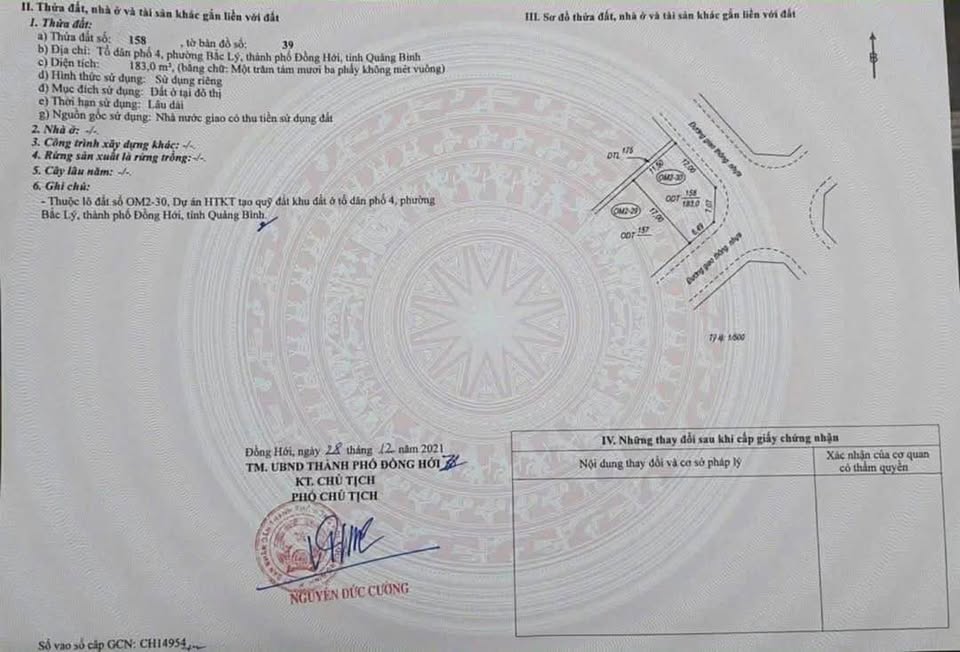 II. Thửa đất, nhà ở và tài sản khác gắn liền với đất
1. Thửa đất:
a) Thửa đất số: 158 , tờ bản đồ số: 39
b) Địa chỉ: Tổ dân phố 4, phường Bắc Lý, thành phố Đồng Hới, tỉnh Quảng Bình
c) Diện tích: 183,0 m², (bằng chữ: Một trăm tám mươi ba phẩy không mét vuông)
d) Hình thức sử dụng: Sử dụng riêng
đ) Mục đích sử dụng: Đất ở tại đô thị
e) Thời hạn sử dụng: Lâu dài
g) Nguồn gốc sử dụng: Nhà nước giao có thu tiền sử dụng đất
2. Nhà ở: -/-.
3. Công trình xây dựng khác: -/-.
4. Rừng sản xuất là rừng trồng:-/-.
5. Cây lâu năm: -/-.
6. Ghi chú:
- Thuộc lô đất số OM2-30, Dự án HTKT tạo quỹ đất khu đất ở tổ dân phố 4, phường
Bắc Lý, thành phố Đồng Hới, tỉnh Quảng Bình.
III. Sơ đồ thửa đất, nhà ở và tài sản khác gắn liền với đất
B
Đường giao thông nhựa
DTL 175
11,50
12,00
OM2-30
ODT 158
183,0
7,07
OM2-29
17,00
6,49
ODT 157
Đường giao thông nhựa
Tỷ lệ: 1/500
Đồng Hới, ngày 28 tháng 12 năm 2021
TM. UBND THÀNH PHỐ ĐỒNG HỚI
KT. CHỦ TỊCH
PHÓ CHỦ TỊCH
NGUYỄN ĐỨC CƯỜNG
IV. Những thay đổi sau khi cấp giấy chứng nhận
Nội dung thay đổi và cơ sở pháp lý
Xác nhận của cơ quan
có thẩm quyền
Số vào sổ cấp GCN: CH14954